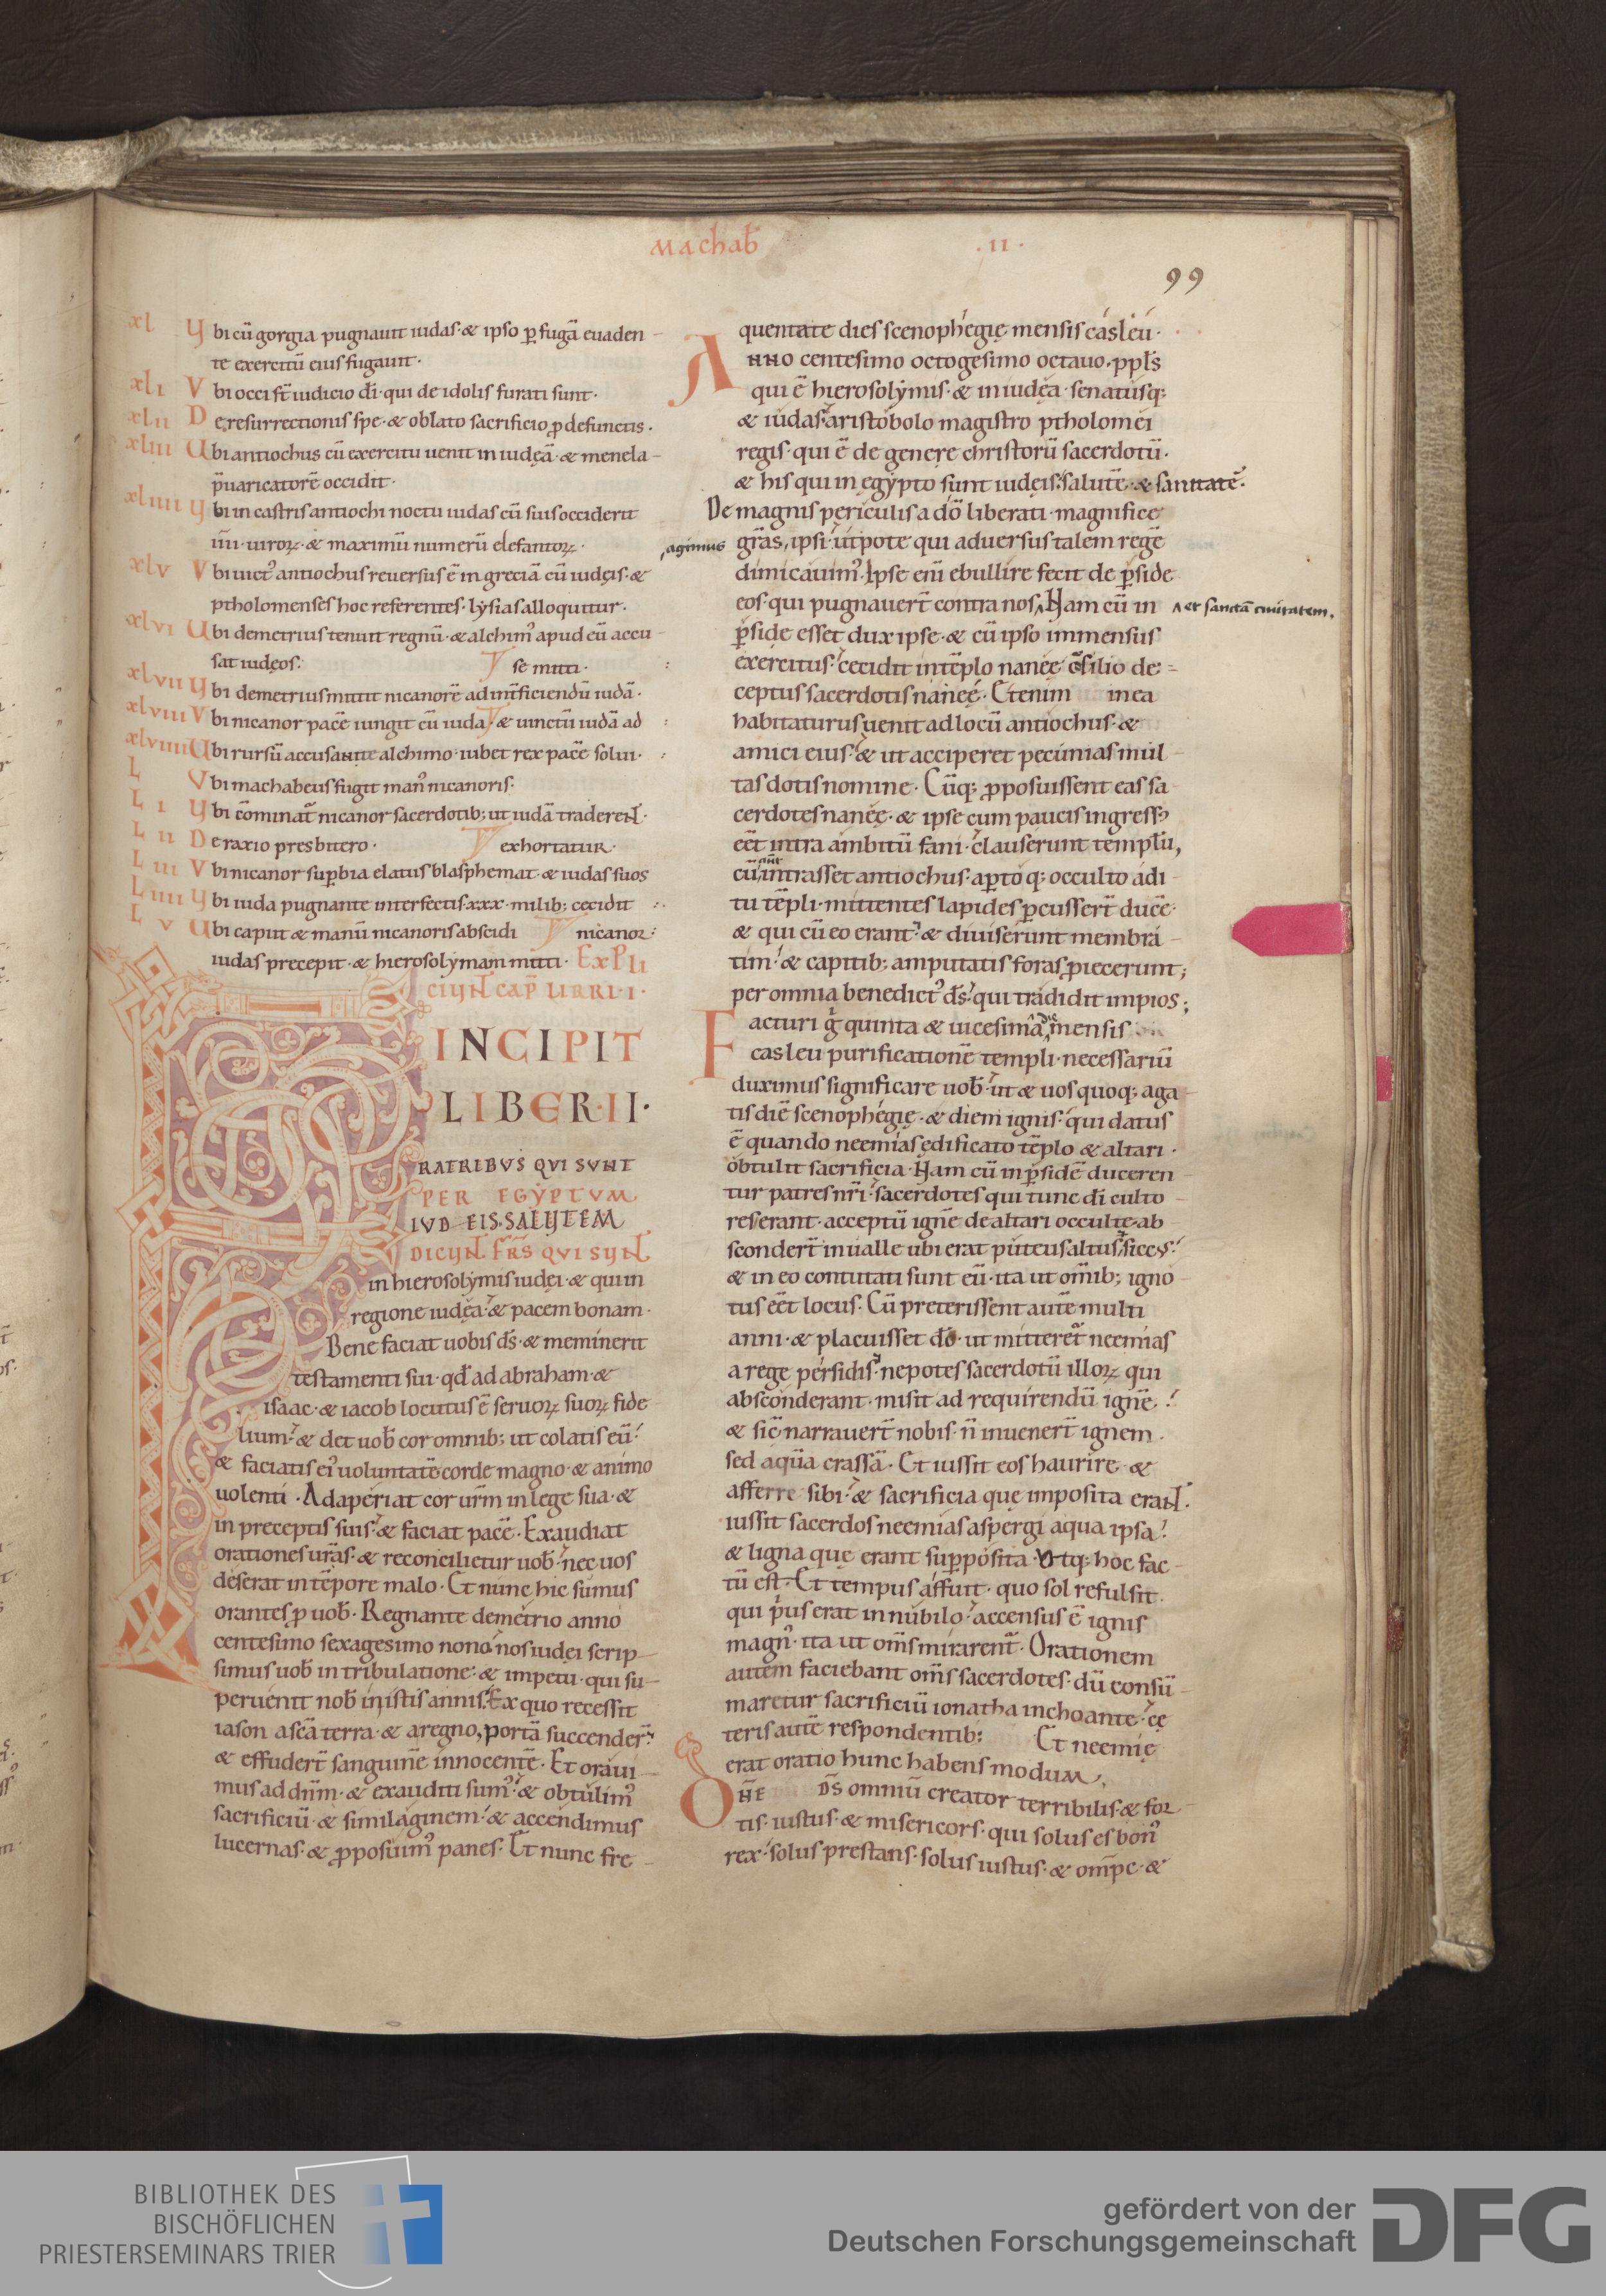 Machab̄ · II ·
99
xl Ubi cū gorgia pugnauit iudas· & ipso ꝑ fugā euaden-
te exercitū eius fugauit·
xli Vbi occi st̄ iudicio dī· qui de idolis furati sunt·
xlii De resurrectionis spe· & oblato sacrificio ꝓ defunctis·
xliii Ubi antiochus cū exercitu uenit in iudęā· & menela-
p̄uaricatorē occidit·
xliiii Ubi in castris antiochi noctu iudas cū suis occiderit
iiii· uiroꝝ· & maximū numerū elefantoꝝ·
xlv Vbi uict᾿ antiochus reuersus ē in greciā cū iudęis· &
ptholomenses hoc referentes· lysias alloquitur·
xlvi Ubi demetrius tenuit regnū· & alchim᾿ apud eū accu-
sat iudęos· se mitti·
xlvii Ubi demetrius mittit nicanorē ad int̄ficiendū iudā·
xlviii Vbi nicanor pacē iungit cū iuda· & uinctū iudā ad
xlviiii Ubi rursū accusante alchimo· iubet rex pacē solui·
L Vbi machabeus fugit man᾿ nicanoris·
LI Ubi cōminat᾿ nicanor sacerdotib; ut iudā traderent·
LII De raxio presbitero· exhortatur·
LIII Vbi nicanor suꝑbia elatus blasphemat· & iudas suos
LIIII Ubi iuda pugnante interfectis· xxx· milib; cecidit
LV Ubi caput & manū nicanoris abscidi nicanor·
iudas precepit· & hierosolymam mitti· EXPLI
CIUNT CAP̄ LIBRI· I·
INCIPIT
LIBER· II·
RATRIBVS QVI SVNT
PER EGYPTVM
IVD EIS· SALUTEM
DICUNT FRS̄ QVI SUNT
in hierosolymis iudęi· & qui in
regione iudęa· & pacem bonam·
Bene faciat uobis ds̄· & meminerit
testamenti sui· qd̄ ad abraham· &
isaac· & iacob locutus ē seruoꝝ suoꝝ fide
lium· & det uob̄ cor omnib; ut colatis eū·
& faciatis ei᾿ uoluntatē corde magno· & animo
uolenti· Adaperiat cor ur̄m in lege sua· &
in preceptis suis· & faciat pacē· Exaudiat
orationes uras̄· & reconcilietur uob̄· nec uos
deserat in tēpore malo· Et nunc hic sumus
orantes ꝓ uob̄· Regnante demetrio anno
centesimo sexagesimo nono· nos iudei scrip-
simus uob̄ in tribulatione· & impetu· qui su-
peruenit nob̄ in istis annis· Ex quo recessit
iason a scā terra· & a regno, portā succender̄·
& effuder̄t sanguinē innocentē· Et oraui-
mus ad dn̄m· & exauditi sum᾿· & obtulim᾿
sacrificiū· & similaginem· & accendimus
lucernas· & ꝓposuim᾿ panes· Et nunc fre-
quentate dies scenophegię mensis casleu·
Anno centesimo octogesimo octauo· ppl̄s
qui ē hierosolymis· & in iudęa· senatusq;
& iudas· aristobolo magistro ptholomei
regis· qui ē de genere christorū sacerdotū·
& his qui in egypto sunt iudęis· salutē· & sanitatē·
De magnis periculis a dō liberati· magnifice
agimus grās, ipsi· utpote qui aduersus talem regē
dimicauim᾿· Ipse eni ebullire fecit de ꝑside
eos· qui pugnauer̄t contra nos ʌ Nam cū in ʌ et sanctā ciuitatem.
ꝑside esset dux ipse· & cū ipso immensus
exercitus· cecidit in tēplo nanęę cōsilio de-
ceptus sacerdotis nanęę· Etenim in ea
habitaturus uenit ad locū antiochus· &
amici eius· & ut acciperet pecunias mul-
tas dotis nomine· Cūq; ꝓposuissent eas sa-
cerdotes nanęę· & ipse cum paucis ingress᾿
eēt intra ambitū fani· clauserunt templū,
cū intrasset antiochus· aꝑto q; occulto adi-
tu tēpli· mittentes lapides ꝑcusser̄t ducē·
& qui cū eo erant· & diuiserunt membra-
tim· & capitib; amputatis foras ꝓiecerunt;
per omnia benedict᾿ ds̄· qui tradidit impios;
Facturi g̊ quinta & uicesima die mensis
casleu purificationē templi· necessariū
duximus significare uob̄· ut & uos quoq; aga
tis diē scenophegię· & diem ignis· qui datus
ē quando neemias ędificato tēplo & altari·
obtulit sacrificia· Nam cū in ꝑsidē duceren
tur patres nr̄i· sacerdotes qui tunc dī culto
res erant· acceptū ignē de altari occulte ab
sconder̄t in ualle ubi erat puteus altus & siccus·
& in eo contutati sunt eū· ita ut om̄ib; igno
tus eēt locus· Cū preterissent autē multi
anni· & placuisset dō· ut mitteret᾿ neemias
a rege persidis· nepotes sacerdotū illoꝝ qui
absconderant· misit ad requirendū ignē·
& sic narrauer̄t nobis· n̄ inuener̄t ignem·
sed aquā crassā· Et iussit eos haurire· &
afferre sibi· & sacrificia quę imposita erant·
iussit sacerdos neemias aspergi aqua ipsa·
& ligna quę erant suꝑposita· Vtq; hoc fac-
tū est· Et tempus affuit· quo sol refulsit·
qui p̄us erat in nubilo· accensus ē ignis
magn᾿· ita ut om̄s mirarent᾿· Orationem
autem faciebant om̄s sacerdotes· dū consū-
maretur sacrificiū ionatha inchoante· cę
teris autē respondentib; Et neemię
erat oratio hunc habens modum·
DNE DS̄ omniū creator terribilis· & for-
tis· iustus· & misericors· qui solus es bon᾿
rex· solus prestans· solus iustus· & om̄pc· &
BIBLIOTHEK DES
BISCHÖFLICHEN
PRIESTERSEMINARS TRIER
gefördert von der
Deutschen Forschungsgemeinschaft
DFG